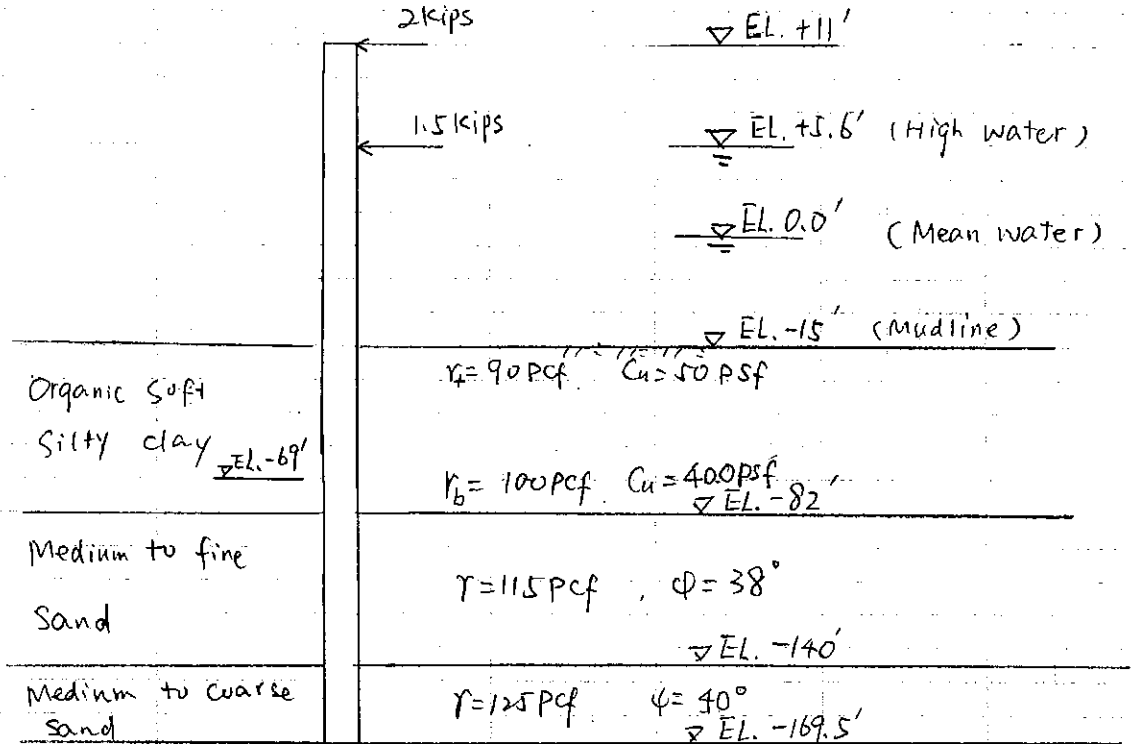 2kips
EL. +11'
1.5kips
EL. +5.6' (High water)
EL. 0.0' (Mean water)
EL. -15' (Mudline)
Organic Soft
Silty clay
EL. -69'
γt = 90 pcf Cu = 50 psf
γb = 100 pcf Cu = 400 psf
EL. -82'
Medium to fine
Sand
γ = 115 pcf, φ = 38°
EL. -140'
Medium to coarse
sand
γ = 125 pcf φ = 40°
EL. -169.5'